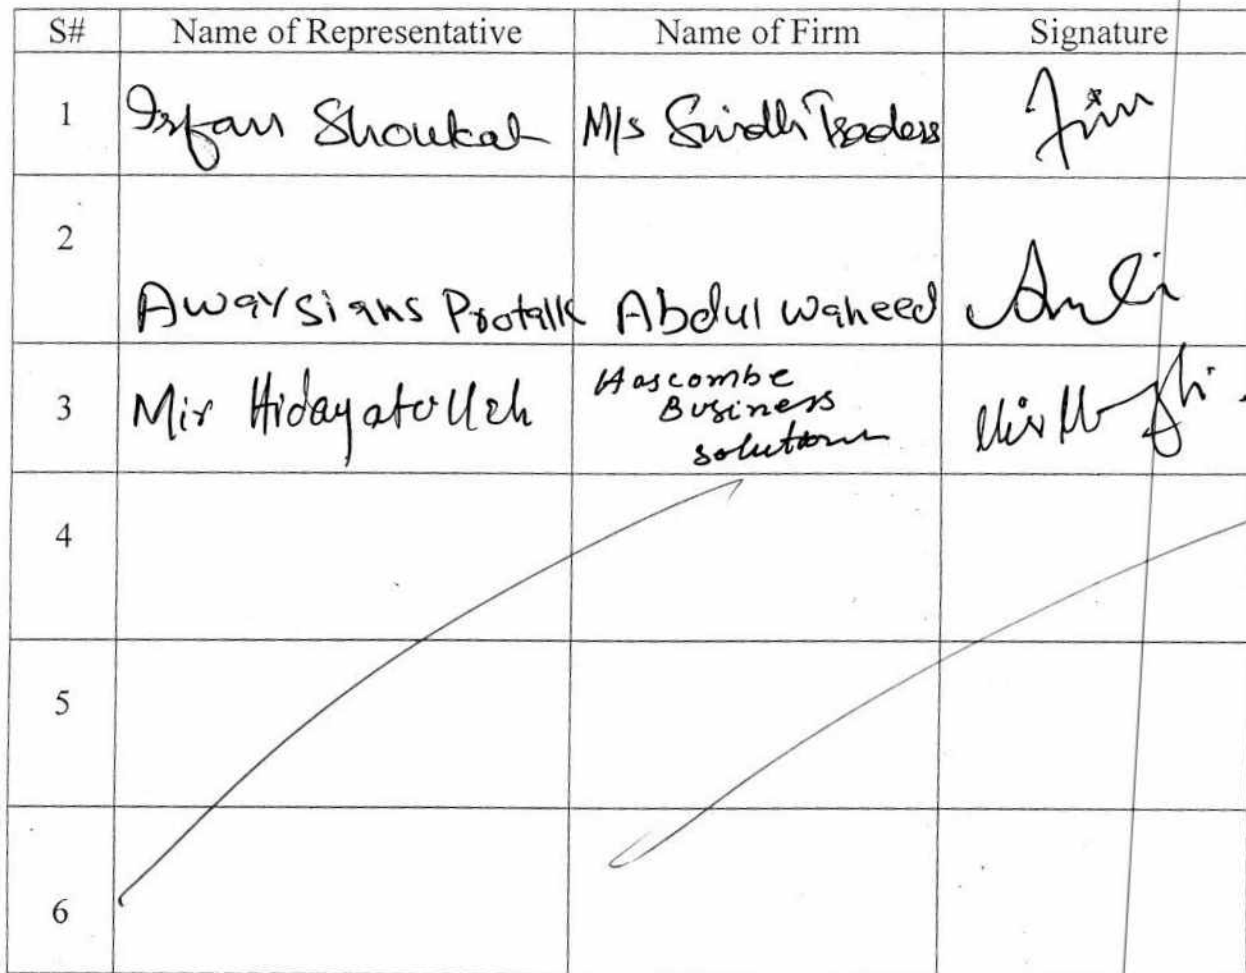 S# Name of Representative Name of Firm Signature
1 Irfan Shoukat M/s Sindh Traders
2 Awaysians Protalk Abdul Waheed
3 Mir Hidayatullah Hascombe
Business
solutions
4
5
6